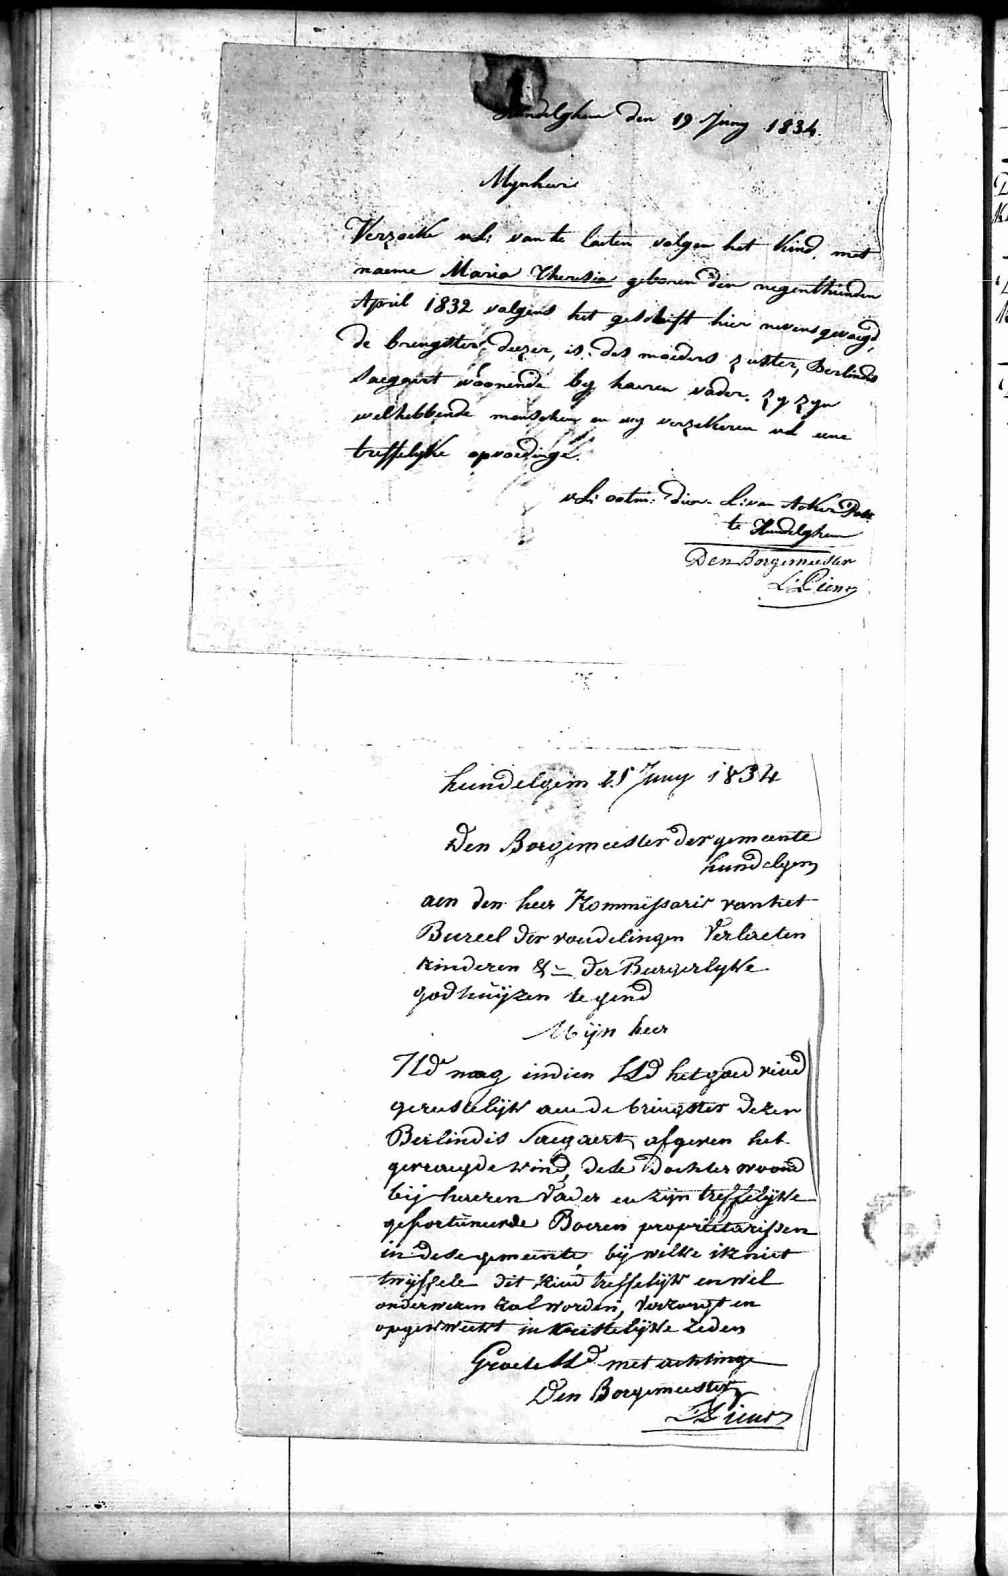 Hundelghem den 19 Juny 1834.
Mynheer
Verzoeke ul: van te laeten volgen het kind, met
naeme Maria Theresia geboren den negenthienden
April 1832 volgens het geschrift hier nevensgevoegd,
de brengster dezer, is: des moeders zuster, Berlindis
Saegaert woonende by haeren vader. Zy zyn
welhebbende menschen en wy verzekeren ul eene
treffelyke opvoedinge.
ul: ootm: dien. L: van Acker Past
te Hundelghem
Den Borgemeester
L: Liens
hundelgem 25 Juny 1834
Den Borgemeester der gemeente
hundelgem
aen den heer Kommissaris van het
Bureel der vondelingen Verlaeten
kinderen &c der Burgerlyke
godhuijzen te gend
Mijn heer
Ud mag indien Ud het goed vind
gerustelijk aen de bringster dezer
Berlindis Saegaert, afgeven het
gevraegde kind, dese Dochter woond
bij haeren Vader en zijn treffelijke
gefortuneerde Boeren proprietarissen
in dese gemeente, bij welke ik niet
twijffele dit kind treffelijk en wel
onderwezen zal worden, verzorgt en
opgekweekt in kristelijke zeden
Groete Ud met achting
Den Borgemeester
L Liens